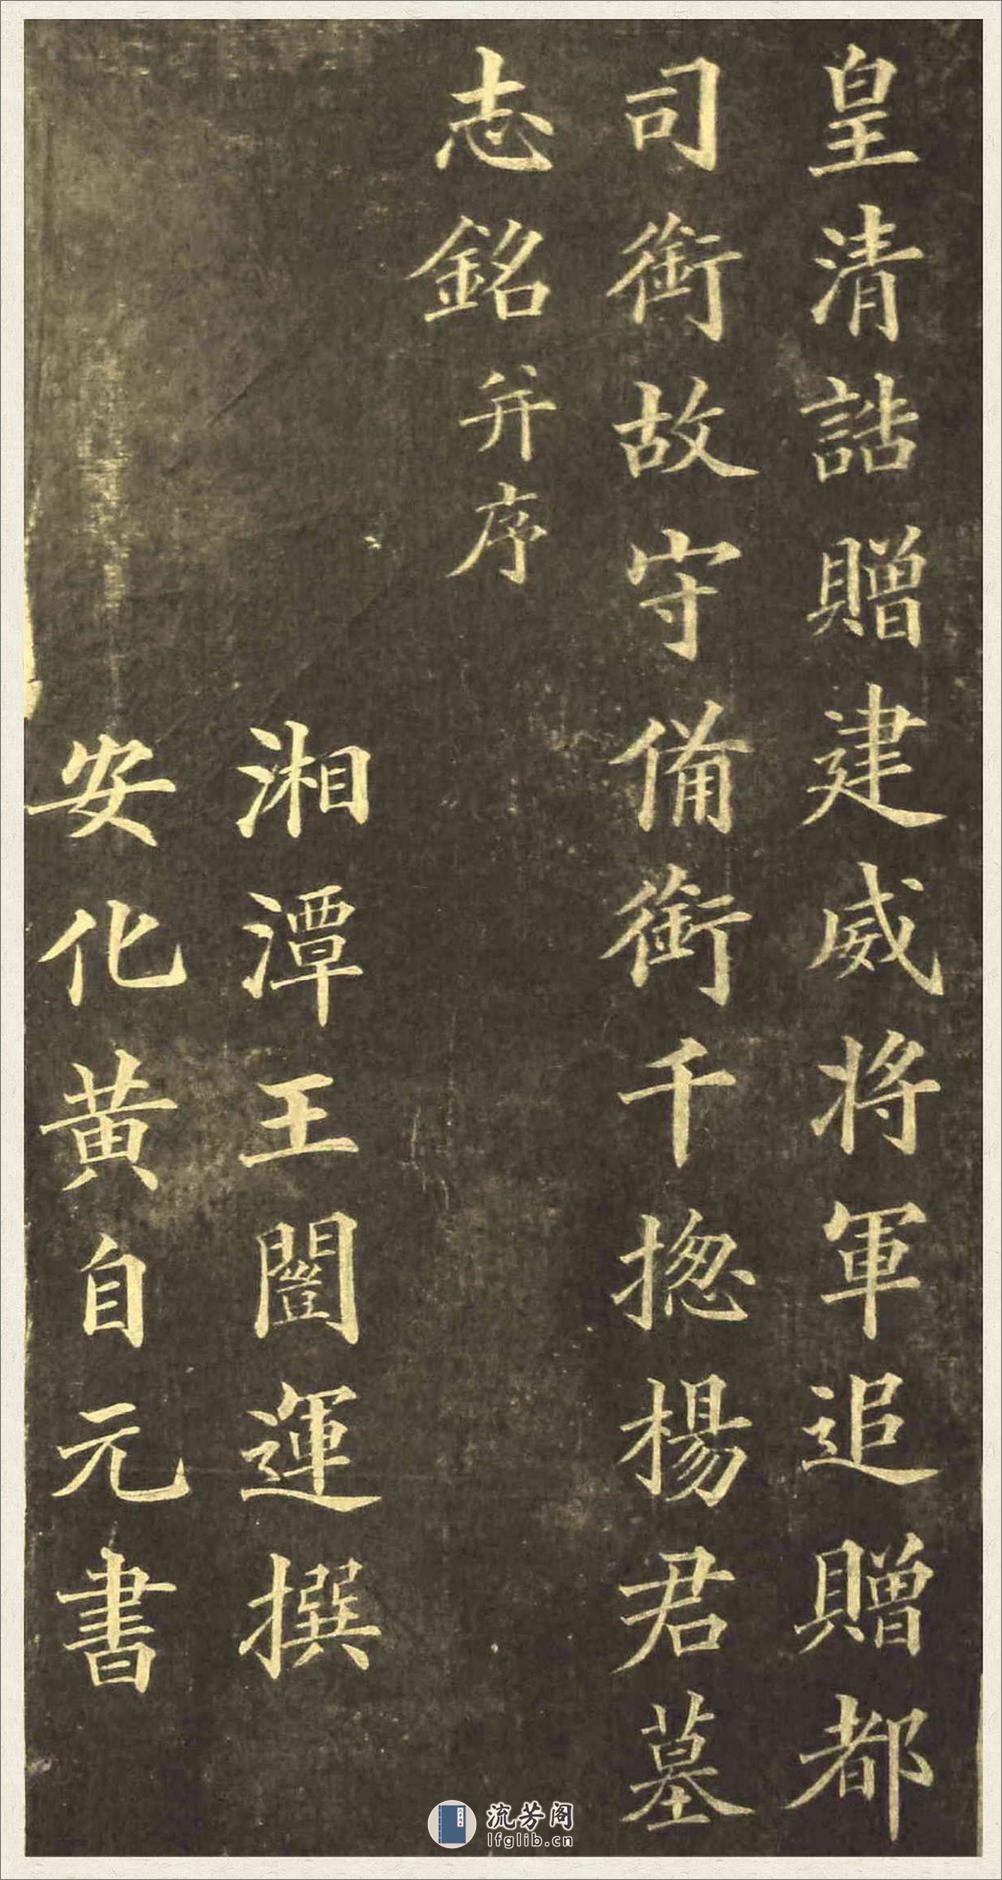 皇清誥贈建威將軍追贈都
司銜故守備銜千揔楊君墓
志銘并序
湘潭王闓運撰
安化黃自元書
流芳阁
lfglib.cn